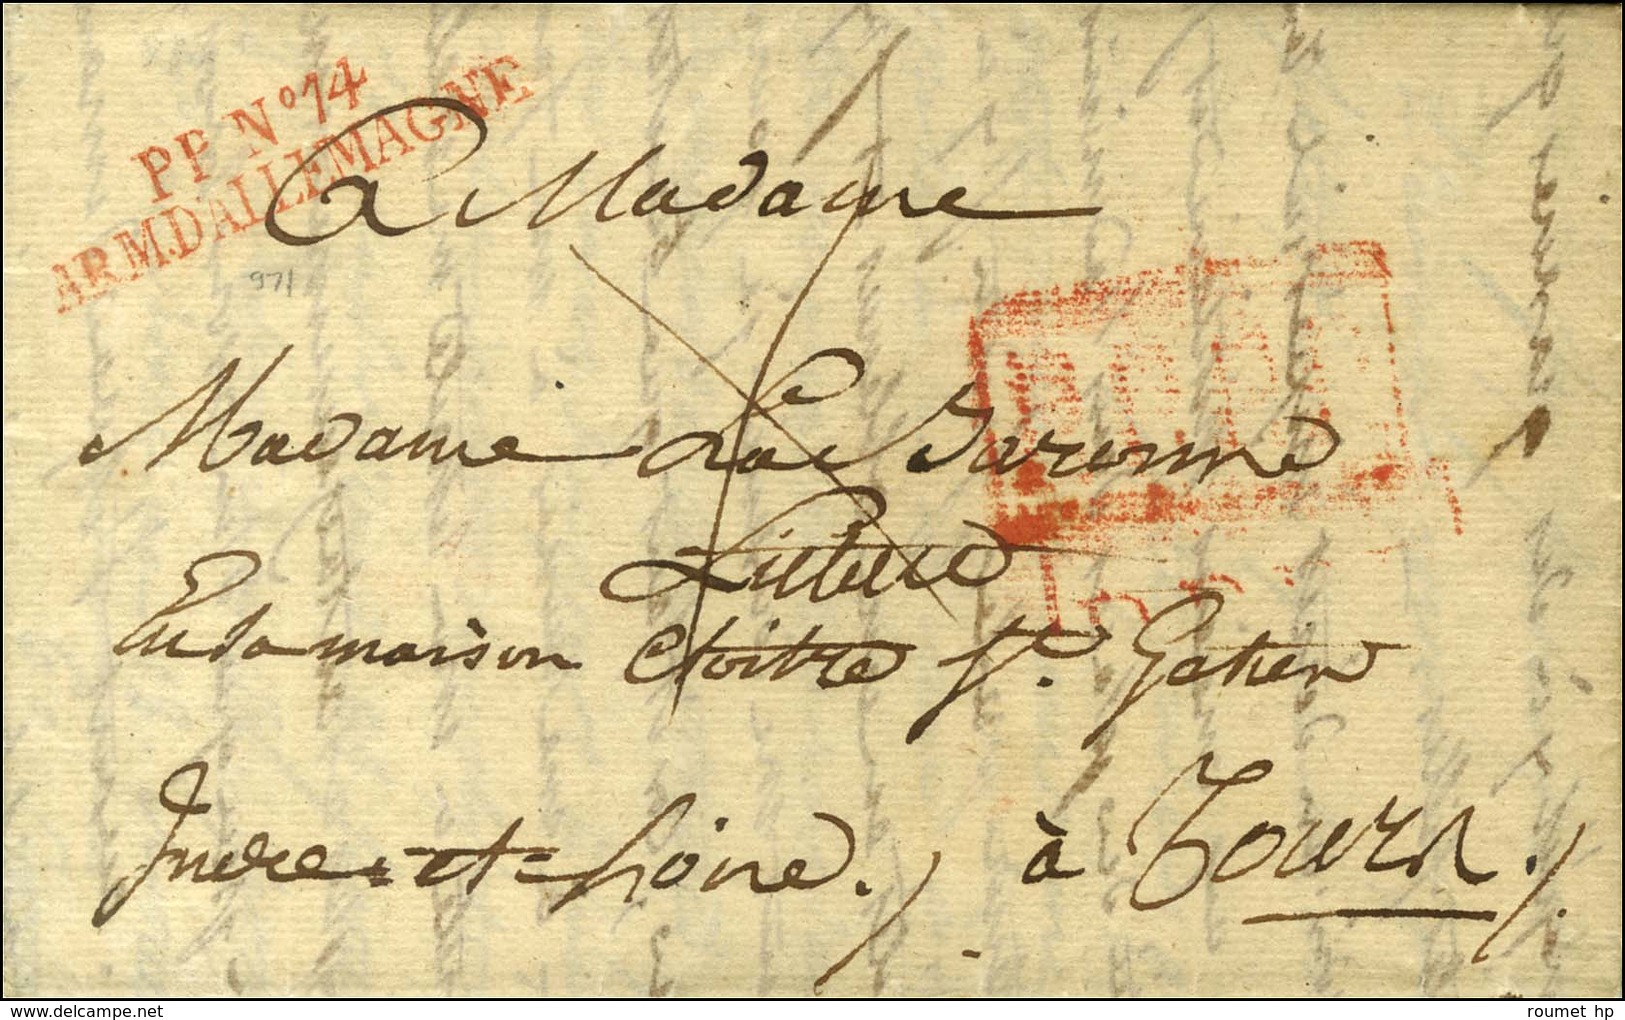 PP. N° 14
ARM. D'ALLEMAGNE
a Madame
971
Madame La Baronne
En sa maison Cloitre St. Gatien
Indre-et-Loire. à Tours.
roumet hp